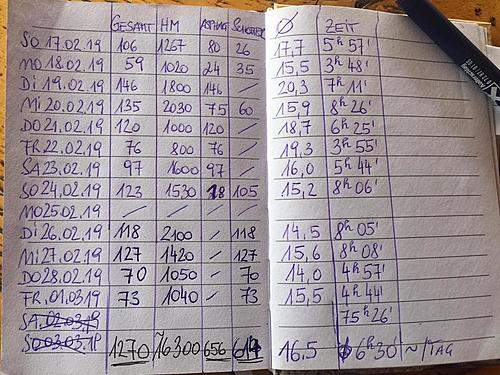 GESAMT HM ASPHALT SCHOTTER Ø ZEIT
SO 17.02.19 106 1267 80 26 17,7 5h 57'
MO 18.02.19 59 1020 24 35 15,5 3h 48'
DI 19.02.19 146 1800 146 / 20,3 7h 11'
MI 20.02.19 135 2030 75 60 15,9 8h 26'
DO 21.02.19 120 1000 120 / 18,7 6h 25'
FR 22.02.19 76 800 76 / 19,3 3h 55'
SA 23.02.19 97 1600 97 / 16,0 5h 44'
SO 24.02.19 123 1530 18 105 15,2 8h 06'
MO 25.02.19 / / / /
DI 26.02.19 118 2100 / 118 14,5 8h 05'
MI 27.02.19 127 1420 / 127 15,6 8h 08'
DO 28.02.19 70 1050 / 70 14,0 4h 57'
FR. 01.03.19 73 1040 / 73 15,5 4h 44'
SA. 02.03.19 75h 26'
SO 03.03.19 1270 ~16300 656 614 16,5 6h 30' ~/TAG